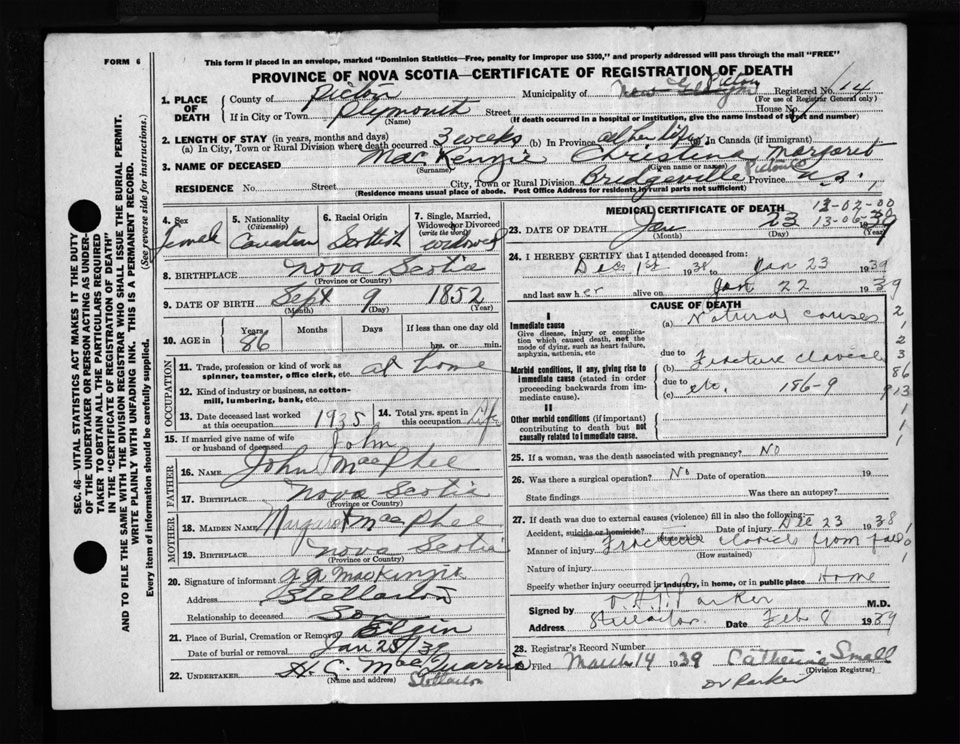 FORM 6
This form if placed in an envelope, marked "Dominion Statistics—Free, penalty for improper use $300," and properly addressed will pass through the mail "FREE"
PROVINCE OF NOVA SCOTIA—CERTIFICATE OF REGISTRATION OF DEATH
1. PLACE OF DEATH
County of Pictou Municipality of Pictou New Glasgow Registered No. 14
(For use of Registrar General only)
If in City or Town Plymouth Street House No.
(Name) (If death occurred in a hospital or institution, give the name instead of street and number)
2. LENGTH OF STAY (in years, months and days)
(a) In City, Town or Rural Division where death occurred 3 weeks (b) In Province all her life (c) In Canada (if immigrant)
3. NAME OF DECEASED MacKenzie Christena Margaret
(Surname) (Given name or names)
RESIDENCE No. Street City, Town or Rural Division Bridgeville Pictou Co Province N.S.
(Residence means usual place of abode. Post Office Address for residents in rural parts not sufficient)
4. Sex Female
5. Nationality (Citizenship) Canadian
6. Racial Origin Scottish
7. Single, Married, Widowed or Divorced (write the word) widowed
8. BIRTHPLACE Nova Scotia
(Province or Country)
9. DATE OF BIRTH Sept 9 1852
(Month) (Day) (Year)
10. AGE in Years 86 Months Days If less than one day old hrs. or min.
OCCUPATION
11. Trade, profession or kind of work as spinner, teamster, office clerk, etc. at home
12. Kind of industry or business, as cotton-mill, lumbering, bank, etc.
13. Date deceased last worked at this occupation 1935
14. Total yrs. spent in this occupation Life
15. If married give name of wife or husband of deceased John
FATHER
16. NAME John MacPhee
17. BIRTHPLACE Nova Scotia
(Province or Country)
MOTHER
18. MAIDEN NAME Margaret MacPhee
19. BIRTHPLACE Nova Scotia
(Province or Country)
20. Signature of informant MacKenzie
Address Stellarton
Relationship to deceased Son
21. Place of Burial, Cremation or Removal Elgin
Date of burial or removal Jan 25/39
22. UNDERTAKER H. C. MacQuarrie
(Name and address) Stellarton
MEDICAL CERTIFICATE OF DEATH
13-02-00
13-06-20
23. DATE OF DEATH Jan 23 1939
(Month) (Day) (Year)
24. I HEREBY CERTIFY that I attended deceased from:
Dec 1st 1938 to Jan 23 1939
and last saw her alive on Jan 22 1939
CAUSE OF DEATH
I
Immediate cause
Give disease, injury or complication which caused death, not the mode of dying, such as heart failure, asphyxia, asthenia, etc
(a) Natural causes
due to
Morbid conditions, if any, giving rise to immediate cause (stated in order proceeding backwards from immediate cause).
(b) Fracture clavicle
due to
(c) etc. 186-9
II
Other morbid conditions (if important) contributing to death but not causally related to immediate cause.
2
1
2
3
86
913
1
1
1
25. If a woman, was the death associated with pregnancy? No
26. Was there a surgical operation? No Date of operation 19
State findings Was there an autopsy?
27. If death was due to external causes (violence) fill in also the following:
Accident, suicide or homicide? (State which) Date of injury Dec 23 1938
Manner of injury Fractured clavicle from fall
(How sustained)
Nature of injury
Specify whether injury occurred in industry, in home, or in public place Home
Signed by Parker M.D.
Address Stellarton Date Feb 8 1939
28. Registrar's Record Number
Filed March 14 1939 Catherine Small
(Division Registrar)
Dr Parker
SEC. 46—VITAL STATISTICS ACT MAKES IT THE DUTY
OF THE UNDERTAKER OR PERSON ACTING AS UNDER-
TAKER TO OBTAIN ALL THE PARTICULARS REQUIRED
IN THE "CERTIFICATE OF REGISTRATION OF DEATH"
AND TO FILE THE SAME WITH THE DIVISION REGISTRAR WHO SHALL ISSUE THE BURIAL PERMIT.
WRITE PLAINLY WITH UNFADING INK. THIS IS A PERMANENT RECORD.
Every item of information should be carefully supplied. (See reverse side for instructions.)